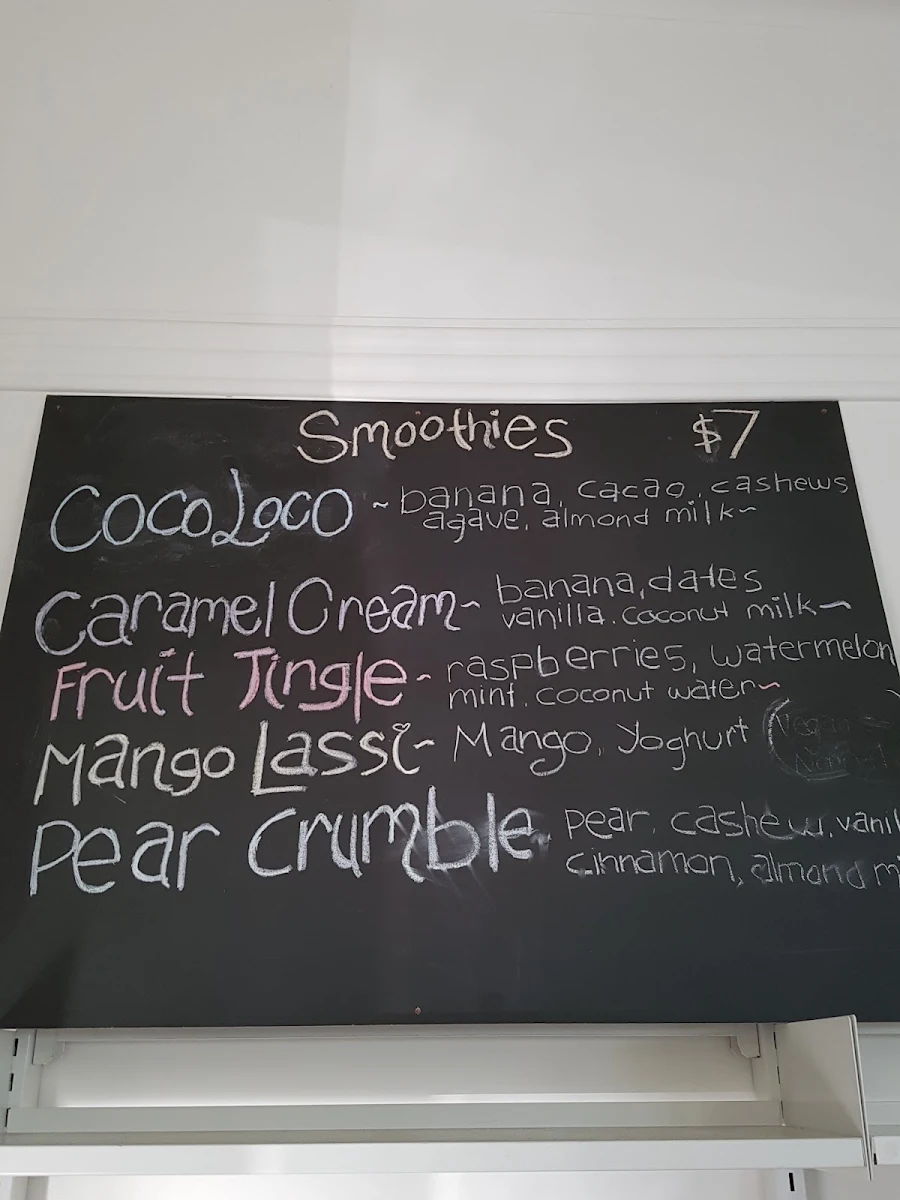 Smoothies $7
CocoLoco ~ banana, cacao, cashews
agave, almond milk~
Caramel Cream~ banana, dates
vanilla. coconut milk~
Fruit Tingle~ raspberries, watermelon
mint. coconut water~
Mango Lassi~ Mango, Yoghurt (Vegan
Pear Crumble. pear, cashew, vanil
cinnamon, almond mi